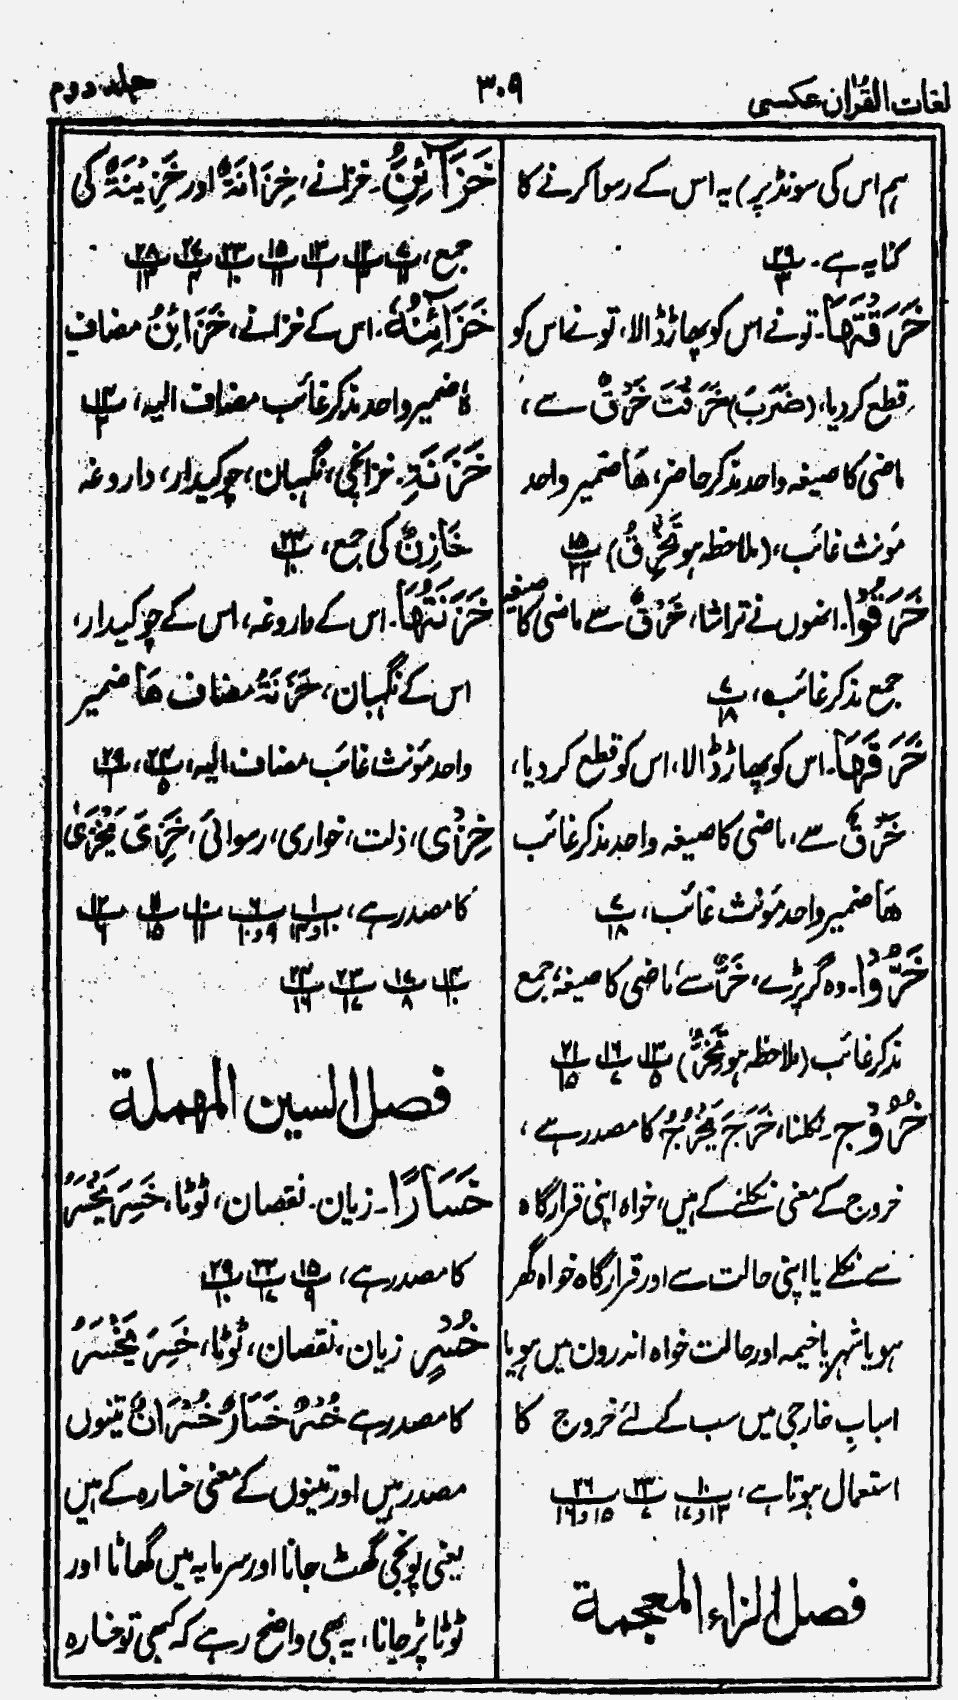 لغات القرآن عکسی
۳۰۹
جلد دوم
ہم اس کی سونڈ پر) یہ اس کے رسوا کرنے کا
کنایہ ہے۔ پ۲۹ ۳
خَرَقْتَهَا۔ تو نے اس کو پھاڑ ڈالا، تو نے اس کو
قطع کر دیا، (ضَرَبَ) خَرَقْتَ خَرْقٌ سے،
ماضی کا صیغہ واحد مذکر حاضر، هَا ضمیر واحد
مؤنث غائب، (ملاحظہ ہو تَخْرِقُ) پ۱۵
خَرَقُوْا۔ انھوں نے تراشا، خَرْقٌ سے ماضی کا صیغہ
جمع مذکر غائب ہ، پ۷ ۱۸
خَرَقَهَا۔ اس کو پھاڑ ڈالا، اس کو قطع کر دیا،
خَرْقٌ سے، ماضی کا صیغہ واحد مذکر غائب
هَا ضمیر واحد مؤنث غائب، پ۷ ۱۸
خَرُّوْا۔ وہ گر پڑے، خَرٌّ سے ماضی کا صیغہ، جمع
مذکر غائب (ملاحظہ ہو تَخِرُّ) پ۱۳ ۵ پ۱۶ ۷ پ۲۱ ۱۵
خُرُوْج۔ نکلنا، خَرَجَ یَخْرُجُ کا مصدر ہے،
خروج کے معنی نکلنے کے ہیں، خواہ اپنی قرار گاہ
سے نکلے یا اپنی حالت سے اور قرار گاہ خواہ گھر
ہو یا شہر یا خیمہ اور حالت خواہ اندرون میں ہو یا
اسبابِ خارجی میں سب کے لئے خروج کا
استعمال ہوتا ہے، پ۱۰ ۱۳و۱۷ پ۲۳ ۷ پ۲۶ ۱۵و۱۶
فصل الزاء المعجمة
خَزَآئِنُ۔ خزانے، خِزَانَةٌ اور خَزِیْنَةٌ کی
جمع، پ۷ ۱۱ پ۱۲ ۳ پ۱۳ ۱ پ۱۵ ۱۱ پ۲۳ ۱۰ پ۲۷ ۴ پ۲۸ ۱۳
خَزَآئِنُهٗ۔ اس کے خزانے، خَزَائِنُ مضاف
هٗ ضمیر واحد مذکر غائب مضاف الیہ، پ۱۴ ۲
خَزَنَةِ۔ خزانچی، نگہبان، چوکیدار، داروغہ
خَازِنٌ کی جمع، پ۲۴ ۱۰
خَزَنَتُهَا۔ اس کے داروغہ، اس کے چوکیدار،
اس کے نگہبان، خَزَنَةُ مضاف هَا ضمیر
واحد مؤنث غائب مضاف الیہ، پ۲۴ ۵، پ۲۹ ۱،
خِزْی، ذلت، خواری، رسوائی، خَزِیَ یَخْزَیٰ
کا مصدر ہے، پ۱ ۱۰و۱۴ پ۶ ۹و۱۰ پ۱۰ ۱۱ پ۱۱ ۱۵ پ۱۲ ۶
پ۱۴ ۱۰ پ۱۷ ۸ پ۲۳ ۱۷ پ۲۴ ۱۶
فصل السین المهملة
خَسَارًا۔ زیان۔ نقصان، ٹوٹا، خَسِرَ یَخْسَرُ
کا مصدر ہے، پ۱۵ ۹ پ۲۲ ۱۷ پ۲۹ ۱۰
خُسْرٍ زیان، نقصان، ٹوٹا، خَسِرَ یَخْسَرُ
کا مصدر ہے خُسْرٌ خَسَارٌ خُسْرَانٌ تینوں
مصدر ہیں اور تینوں کے معنی خسارہ کے ہیں
یعنی پونجی گھٹ جانا اور سرمایہ میں گھاٹا اور
ٹوٹا پڑ جانا، یہ بھی واضح رہے کہ کبھی تو خسارہ